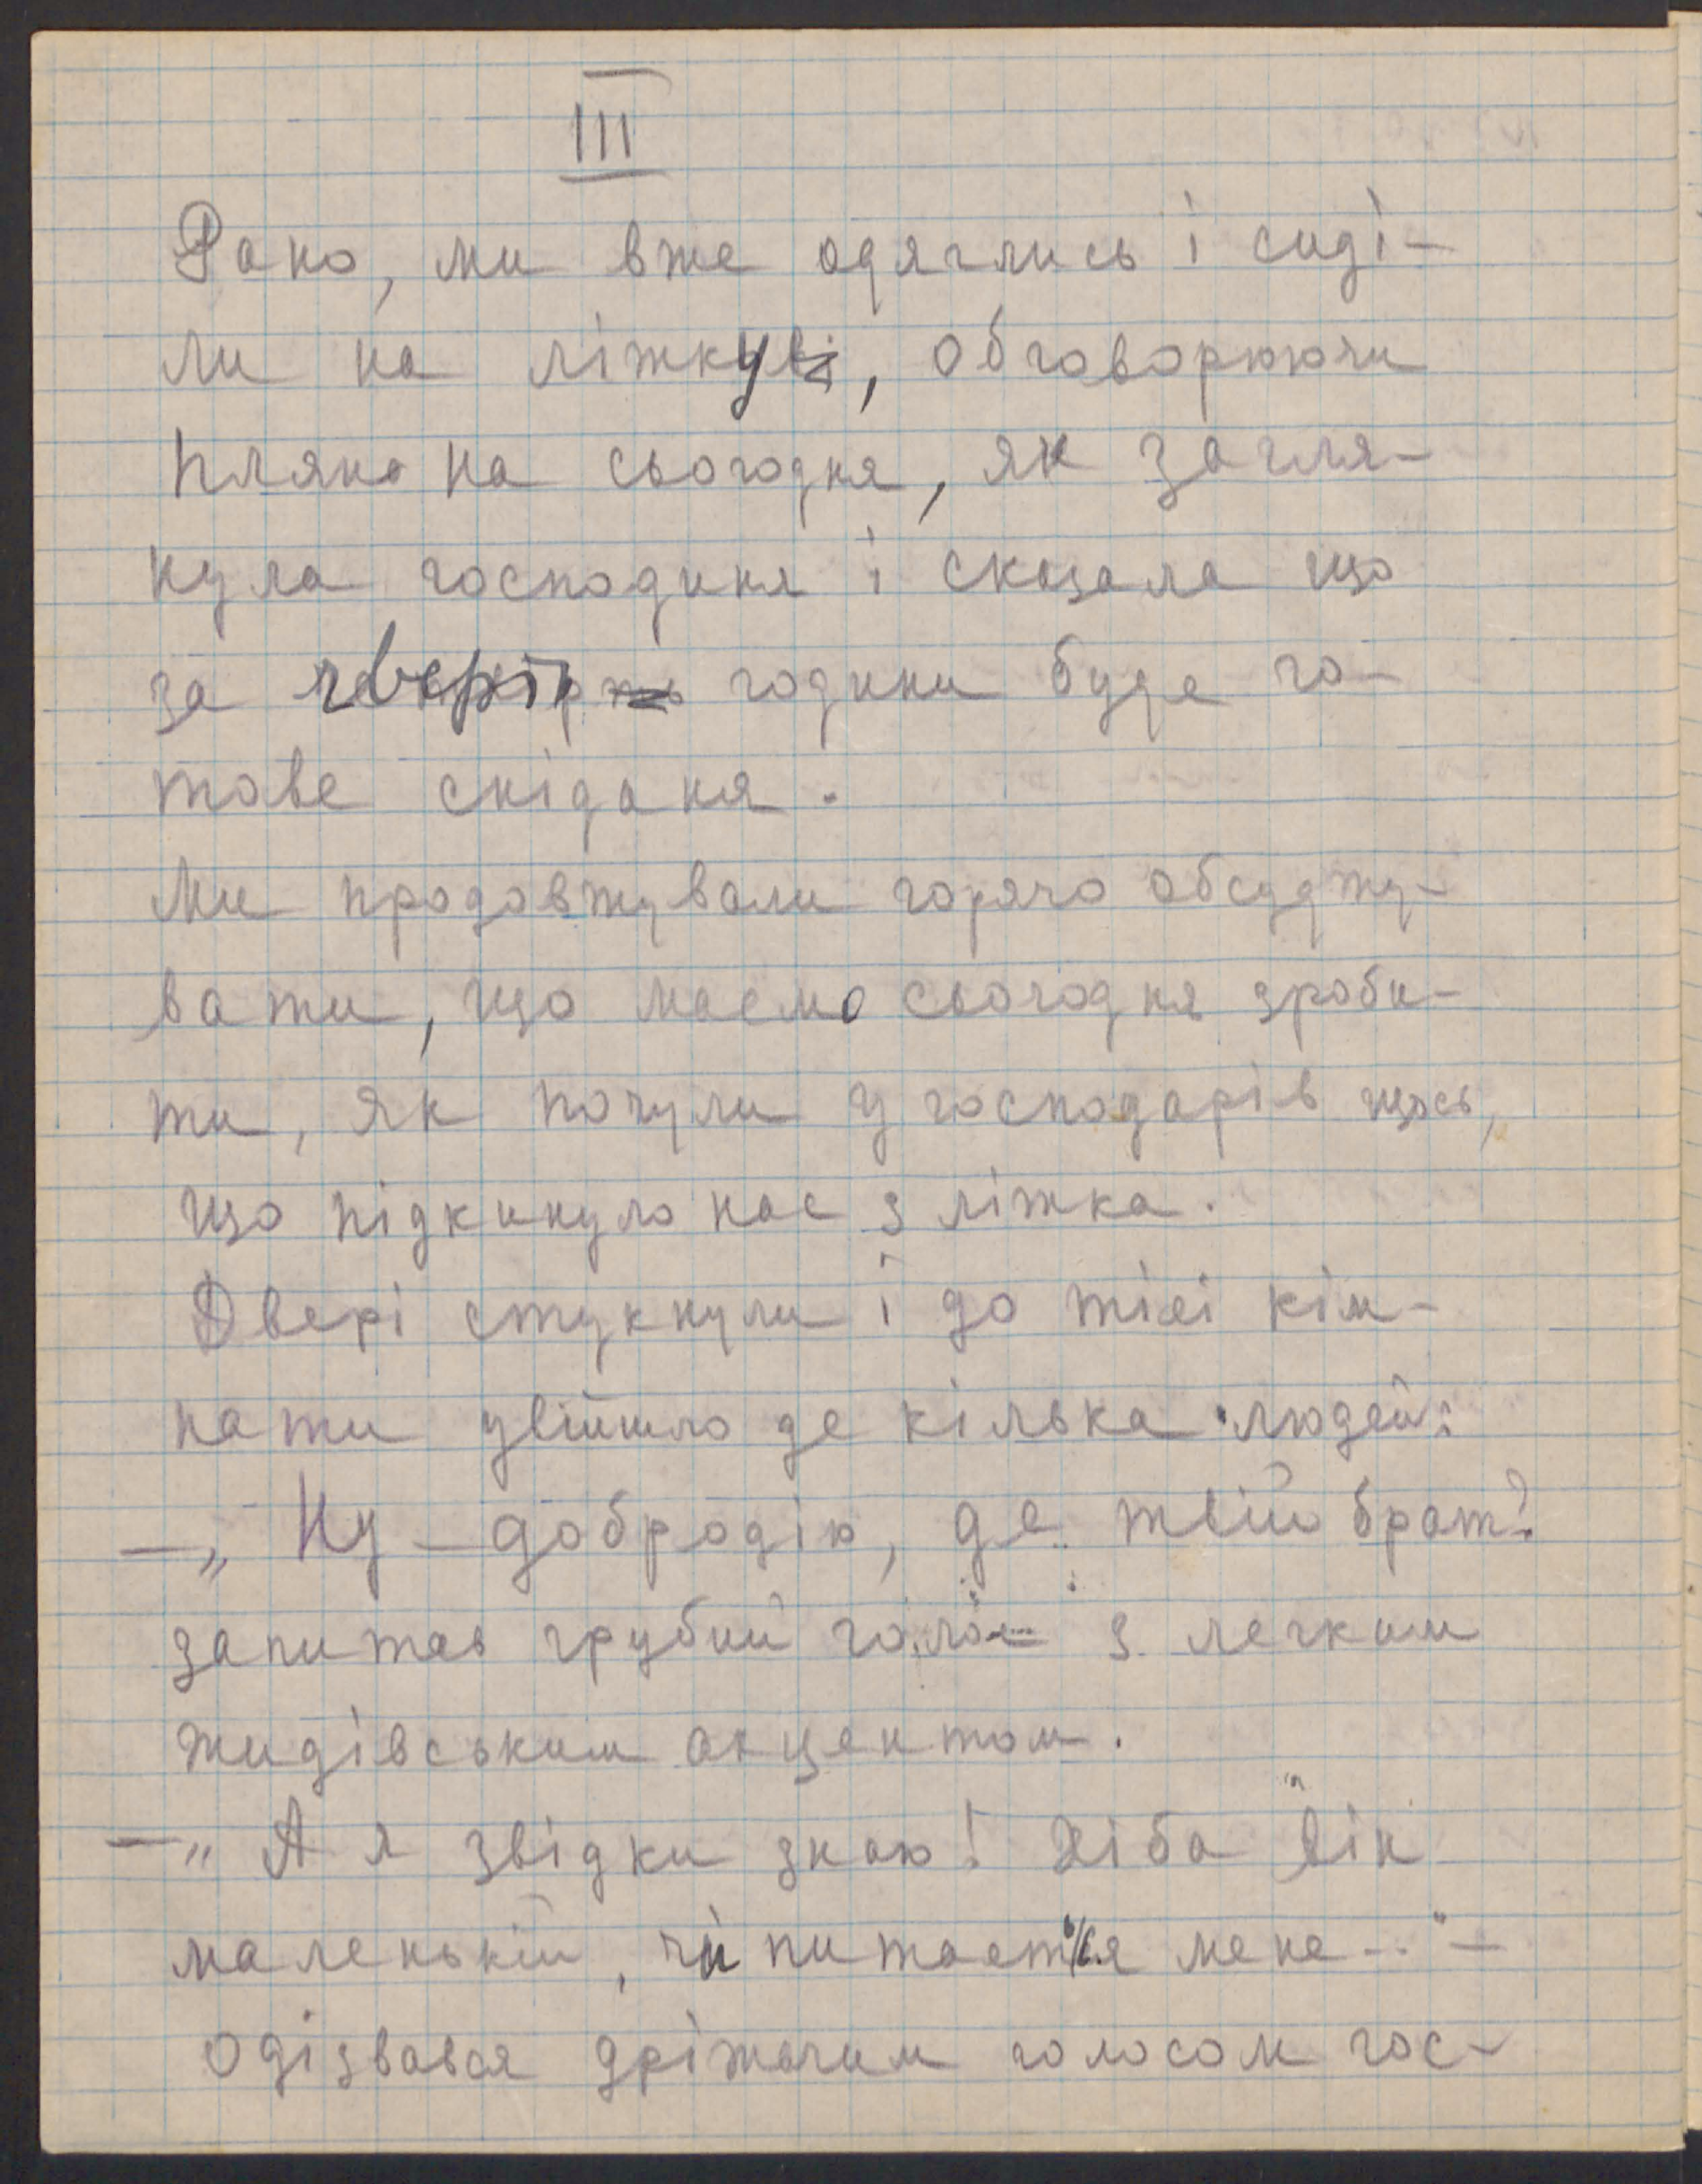 III
Рано, ми вже одяглись і сиді-
ли на ліжку, обговорюючи
пляна на сьогодня, як загля-
нула господиня і сказала що
за чверть години буде го-
тове сніданя.
Ми продовжували горячо обсуджу-
вати, що маємо сьогодня зроби-
ти, як почули у господарів щось,
що підкинуло нас з ліжка.
Двері стукнули і до тієї кім-
нати увійшло де кілька людей:
—„Ну — добродію, де твій брат?
запитав грубий голос з легким
жидівським акцентом.
—„А я звідки знаю! Хіба він
маленький, чи питається мене..." —
одізвався дріжачим голосом гос-